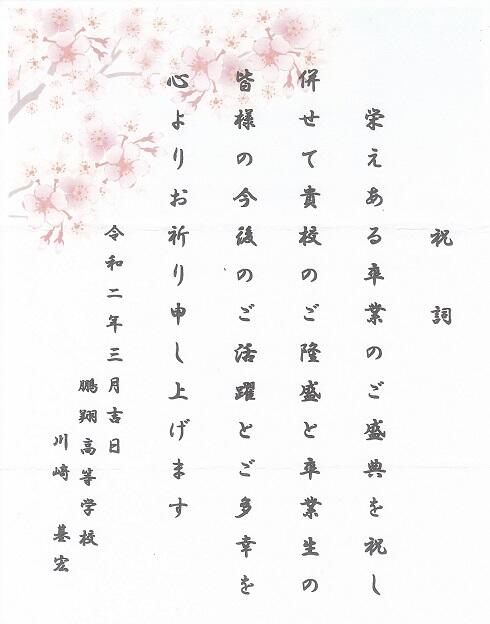 祝詞
栄えある卒業のご盛典を祝し
併せて貴校のご隆盛と卒業生の
皆様の今後のご活躍とご多幸を
心よりお祈り申し上げます
令和二年三月吉日
鵬翔高等学校
川﨑 基宏